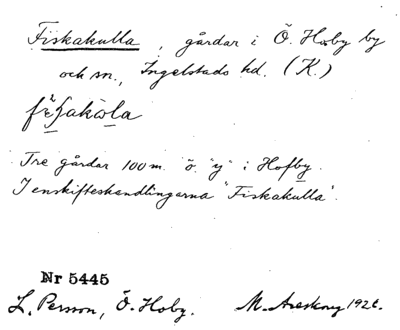 Fiskakulla, gårdar i Ö. Hoby by
och sn., Ingelstads hd. (K.)
Tre gårdar 100 m. ö. "y" i Hofby.
I enskifteshandlingarna "Fiskakulla".
Nr 5445
L. Persson, Ö. Hoby. M. Areskoug 1928.